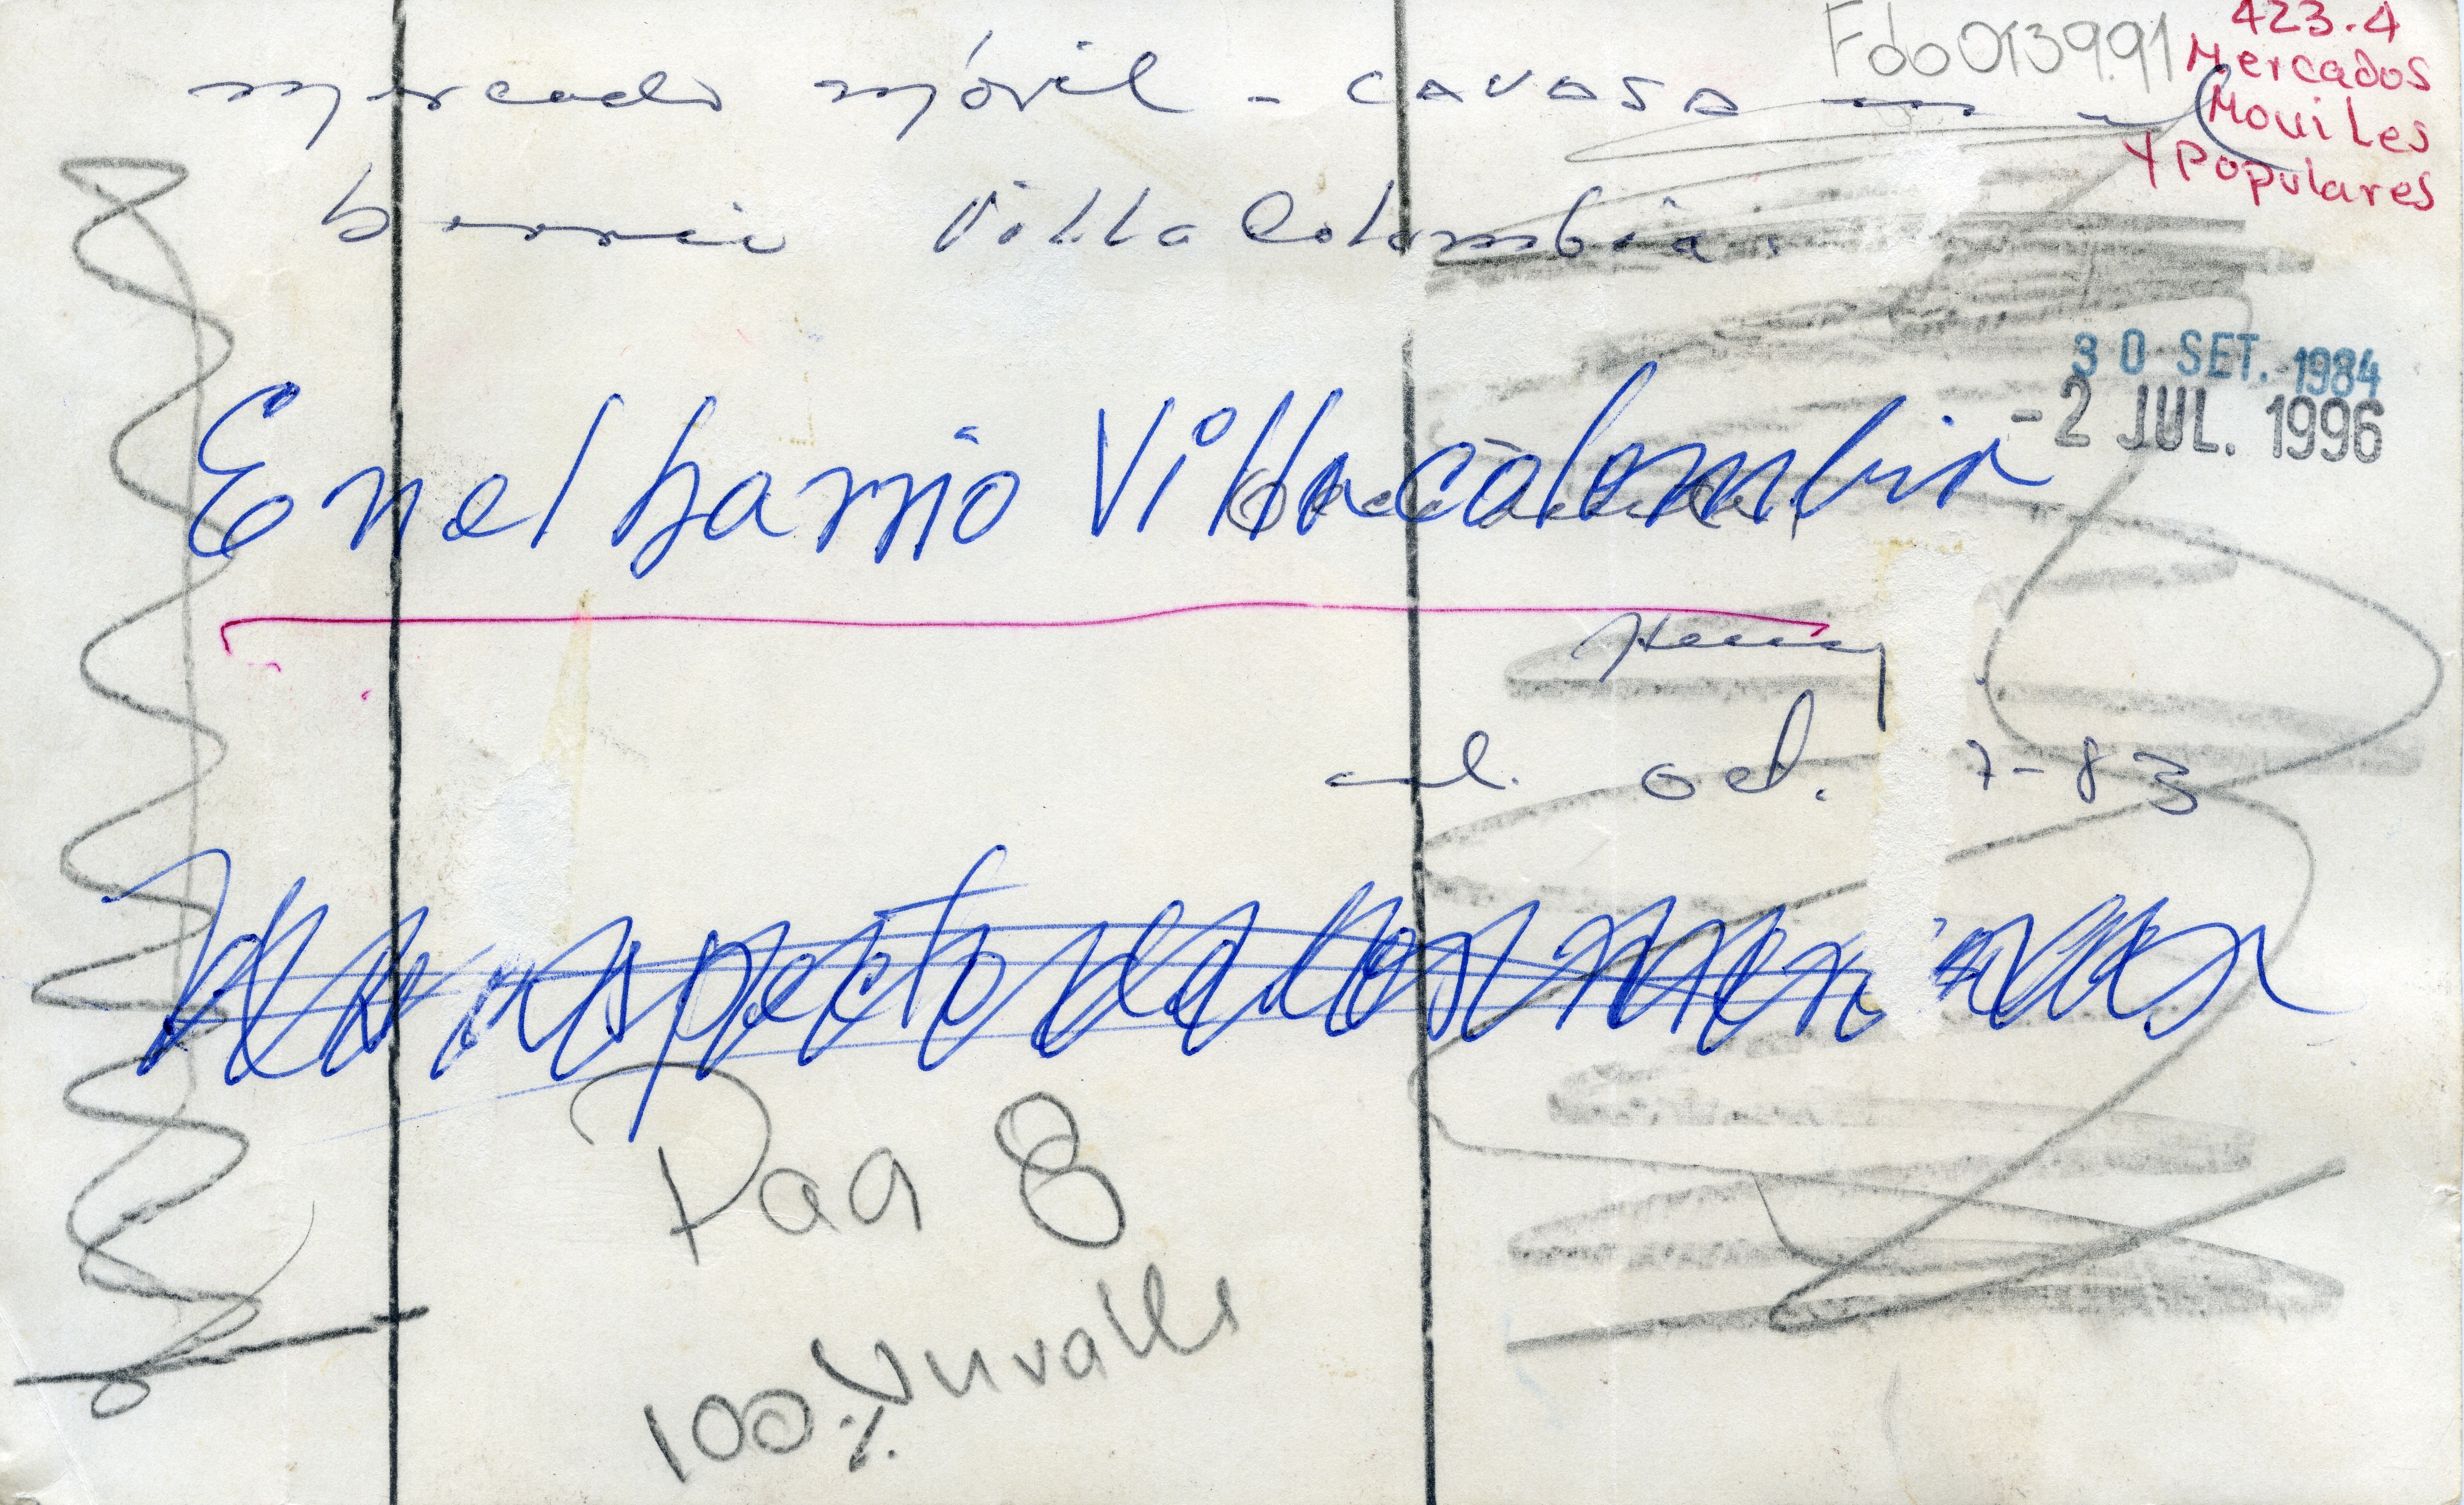 Fdo013991
423.4
Mercados
Moviles
y Populares
mercado móvil - CAVASA en el
barrio Villa Colombia.
30 SET. 1984
-2 JUL. 1996
En el barrio Villacolombia
Henry
oct. 7-83
aspecto de los
Pag 8
100%